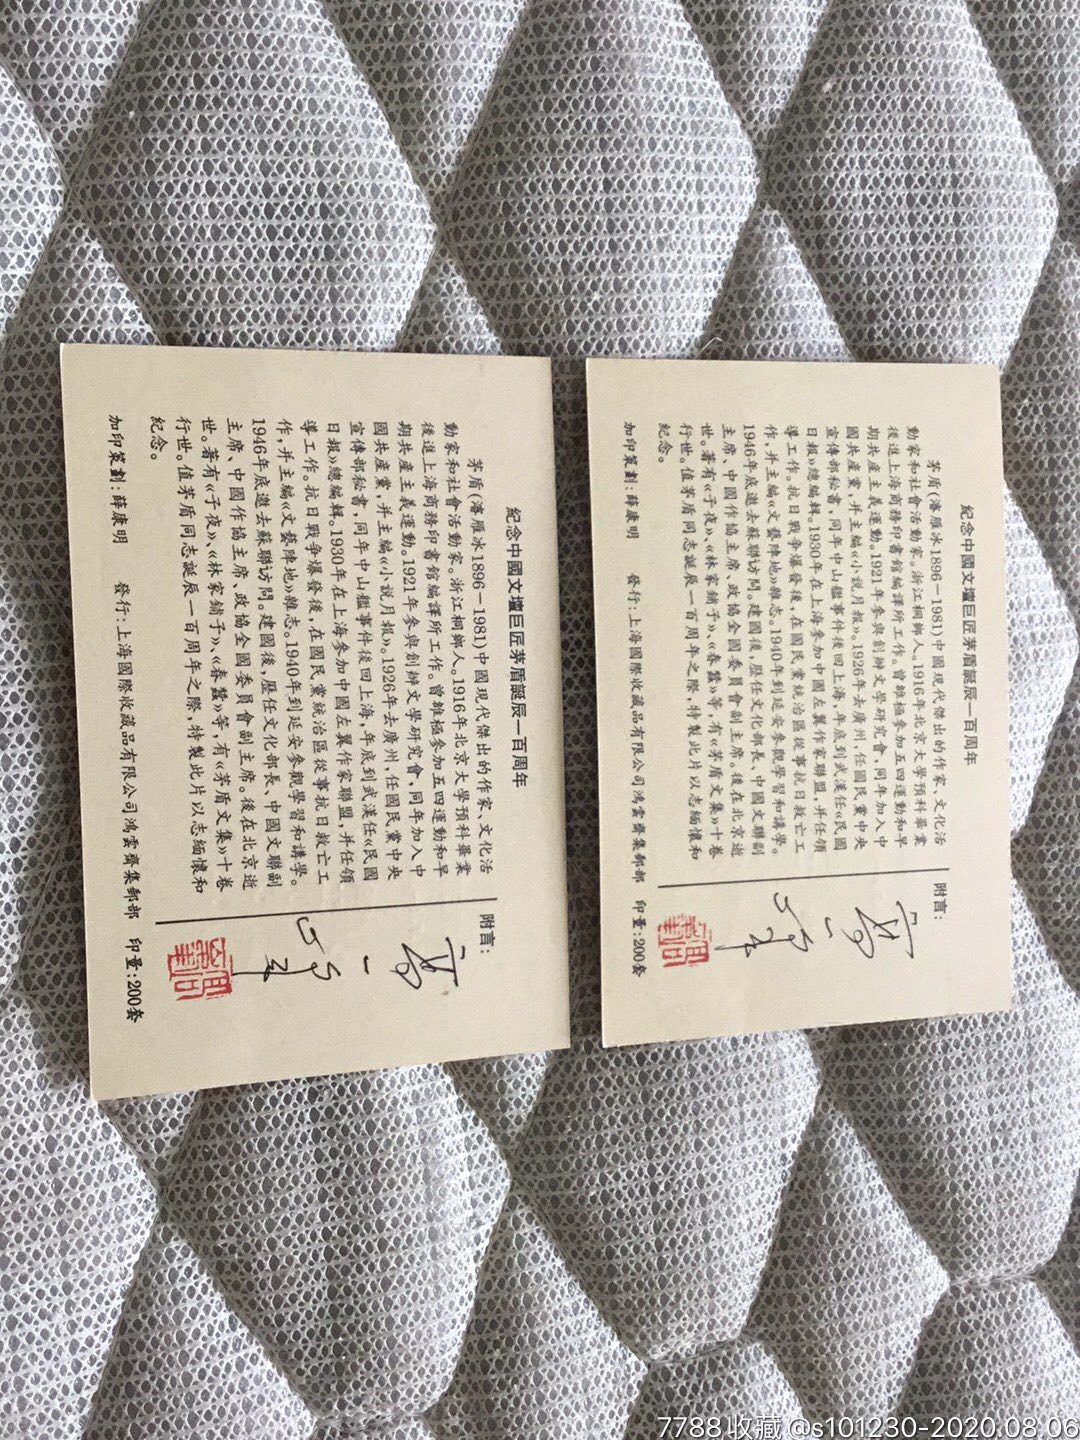 紀念中國文壇巨匠茅盾誕辰一百周年
茅盾(瀋雁冰1896－1981)中國現代傑出的作家、文化活
動家和社會活動家。浙江桐鄉人。1916年北京大學預科畢業
後進上海商務印書館編譯所工作。曾積極參加五四運動和早
期共産主義運動。1921年參與創辦文學研究會，同年加入中
國共産黨，并主編《小説月報》。1926年去廣州，任國民黨中央
宣傳部秘書，同年中山艦事件後回上海，年底到武漢任《民國
日報》總編輯。1930年在上海參加中國左翼作家聯盟，并任領
導工作。抗日戰争爆發後，在國民黨統治區從事抗日救亡工
作，并主編《文藝陣地》雜志。1940年到延安參觀學習和講學。
1946年底邀去蘇聯訪問。建國後，歷任文化部長、中國文聯副
主席、中國作協主席、政協全國委員會副主席。後在北京逝
世。著有《子夜》、《林家鋪子》、《春蠶》等，有《茅盾文集》十卷
行世。值茅盾同志誕辰一百周年之際，特製此片以志緬懷和
紀念。
附言：
加印策劃：薛康明 發行：上海國際收藏品有限公司鴻雲齋集郵部 印量：200套
紀念中國文壇巨匠茅盾誕辰一百周年
茅盾(瀋雁冰1896－1981)中國現代傑出的作家、文化活
動家和社會活動家。浙江桐鄉人。1916年北京大學預科畢業
後進上海商務印書館編譯所工作。曾積極參加五四運動和早
期共産主義運動。1921年參與創辦文學研究會，同年加入中
國共産黨，并主編《小説月報》。1926年去廣州，任國民黨中央
宣傳部秘書，同年中山艦事件後回上海，年底到武漢任《民國
日報》總編輯。1930年在上海參加中國左翼作家聯盟，并任領
導工作。抗日戰争爆發後，在國民黨統治區從事抗日救亡工
作，并主編《文藝陣地》雜志。1940年到延安參觀學習和講學。
1946年底邀去蘇聯訪問。建國後，歷任文化部長、中國文聯副
主席、中國作協主席、政協全國委員會副主席。後在北京逝
世。著有《子夜》、《林家鋪子》、《春蠶》等，有《茅盾文集》十卷
行世。值茅盾同志誕辰一百周年之際，特製此片以志緬懷和
紀念。
附言：
加印策劃：薛康明 發行：上海國際收藏品有限公司鴻雲齋集郵部 印量：200套
7788收藏 @s101230-2020.08.06